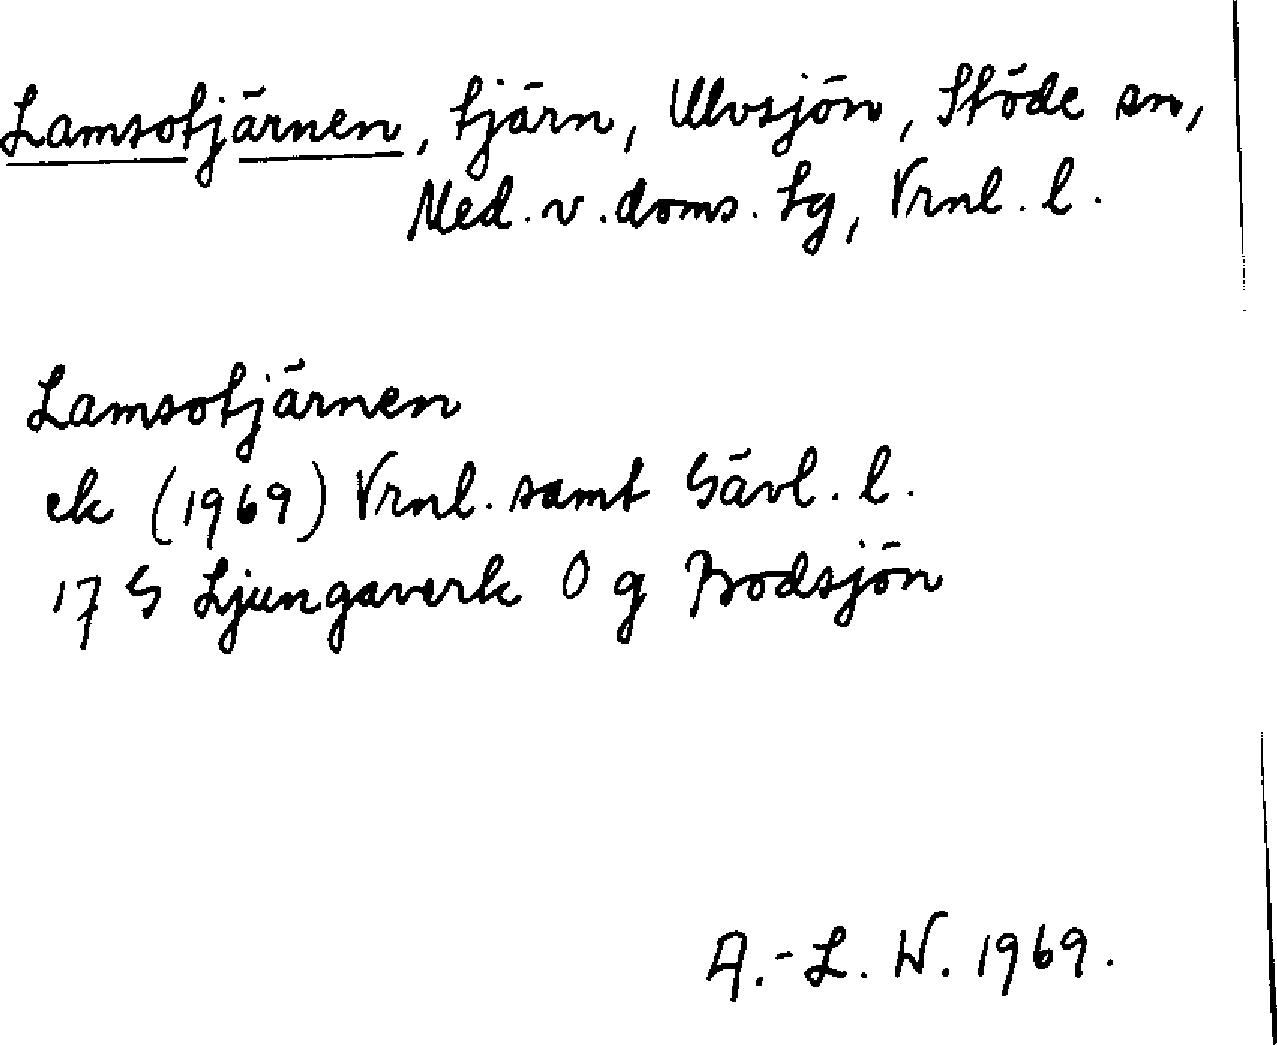 Lamsotjärnen, tjärn, Ulvsjön, Stöde sn,
Med. v. doms. tg, Vrnl. l.
Lamsotjärnen
ek (1969) Vrnl. samt Gävl. l.
17 G Ljungaverk O g Bodsjön
A.-L. W. 1969.